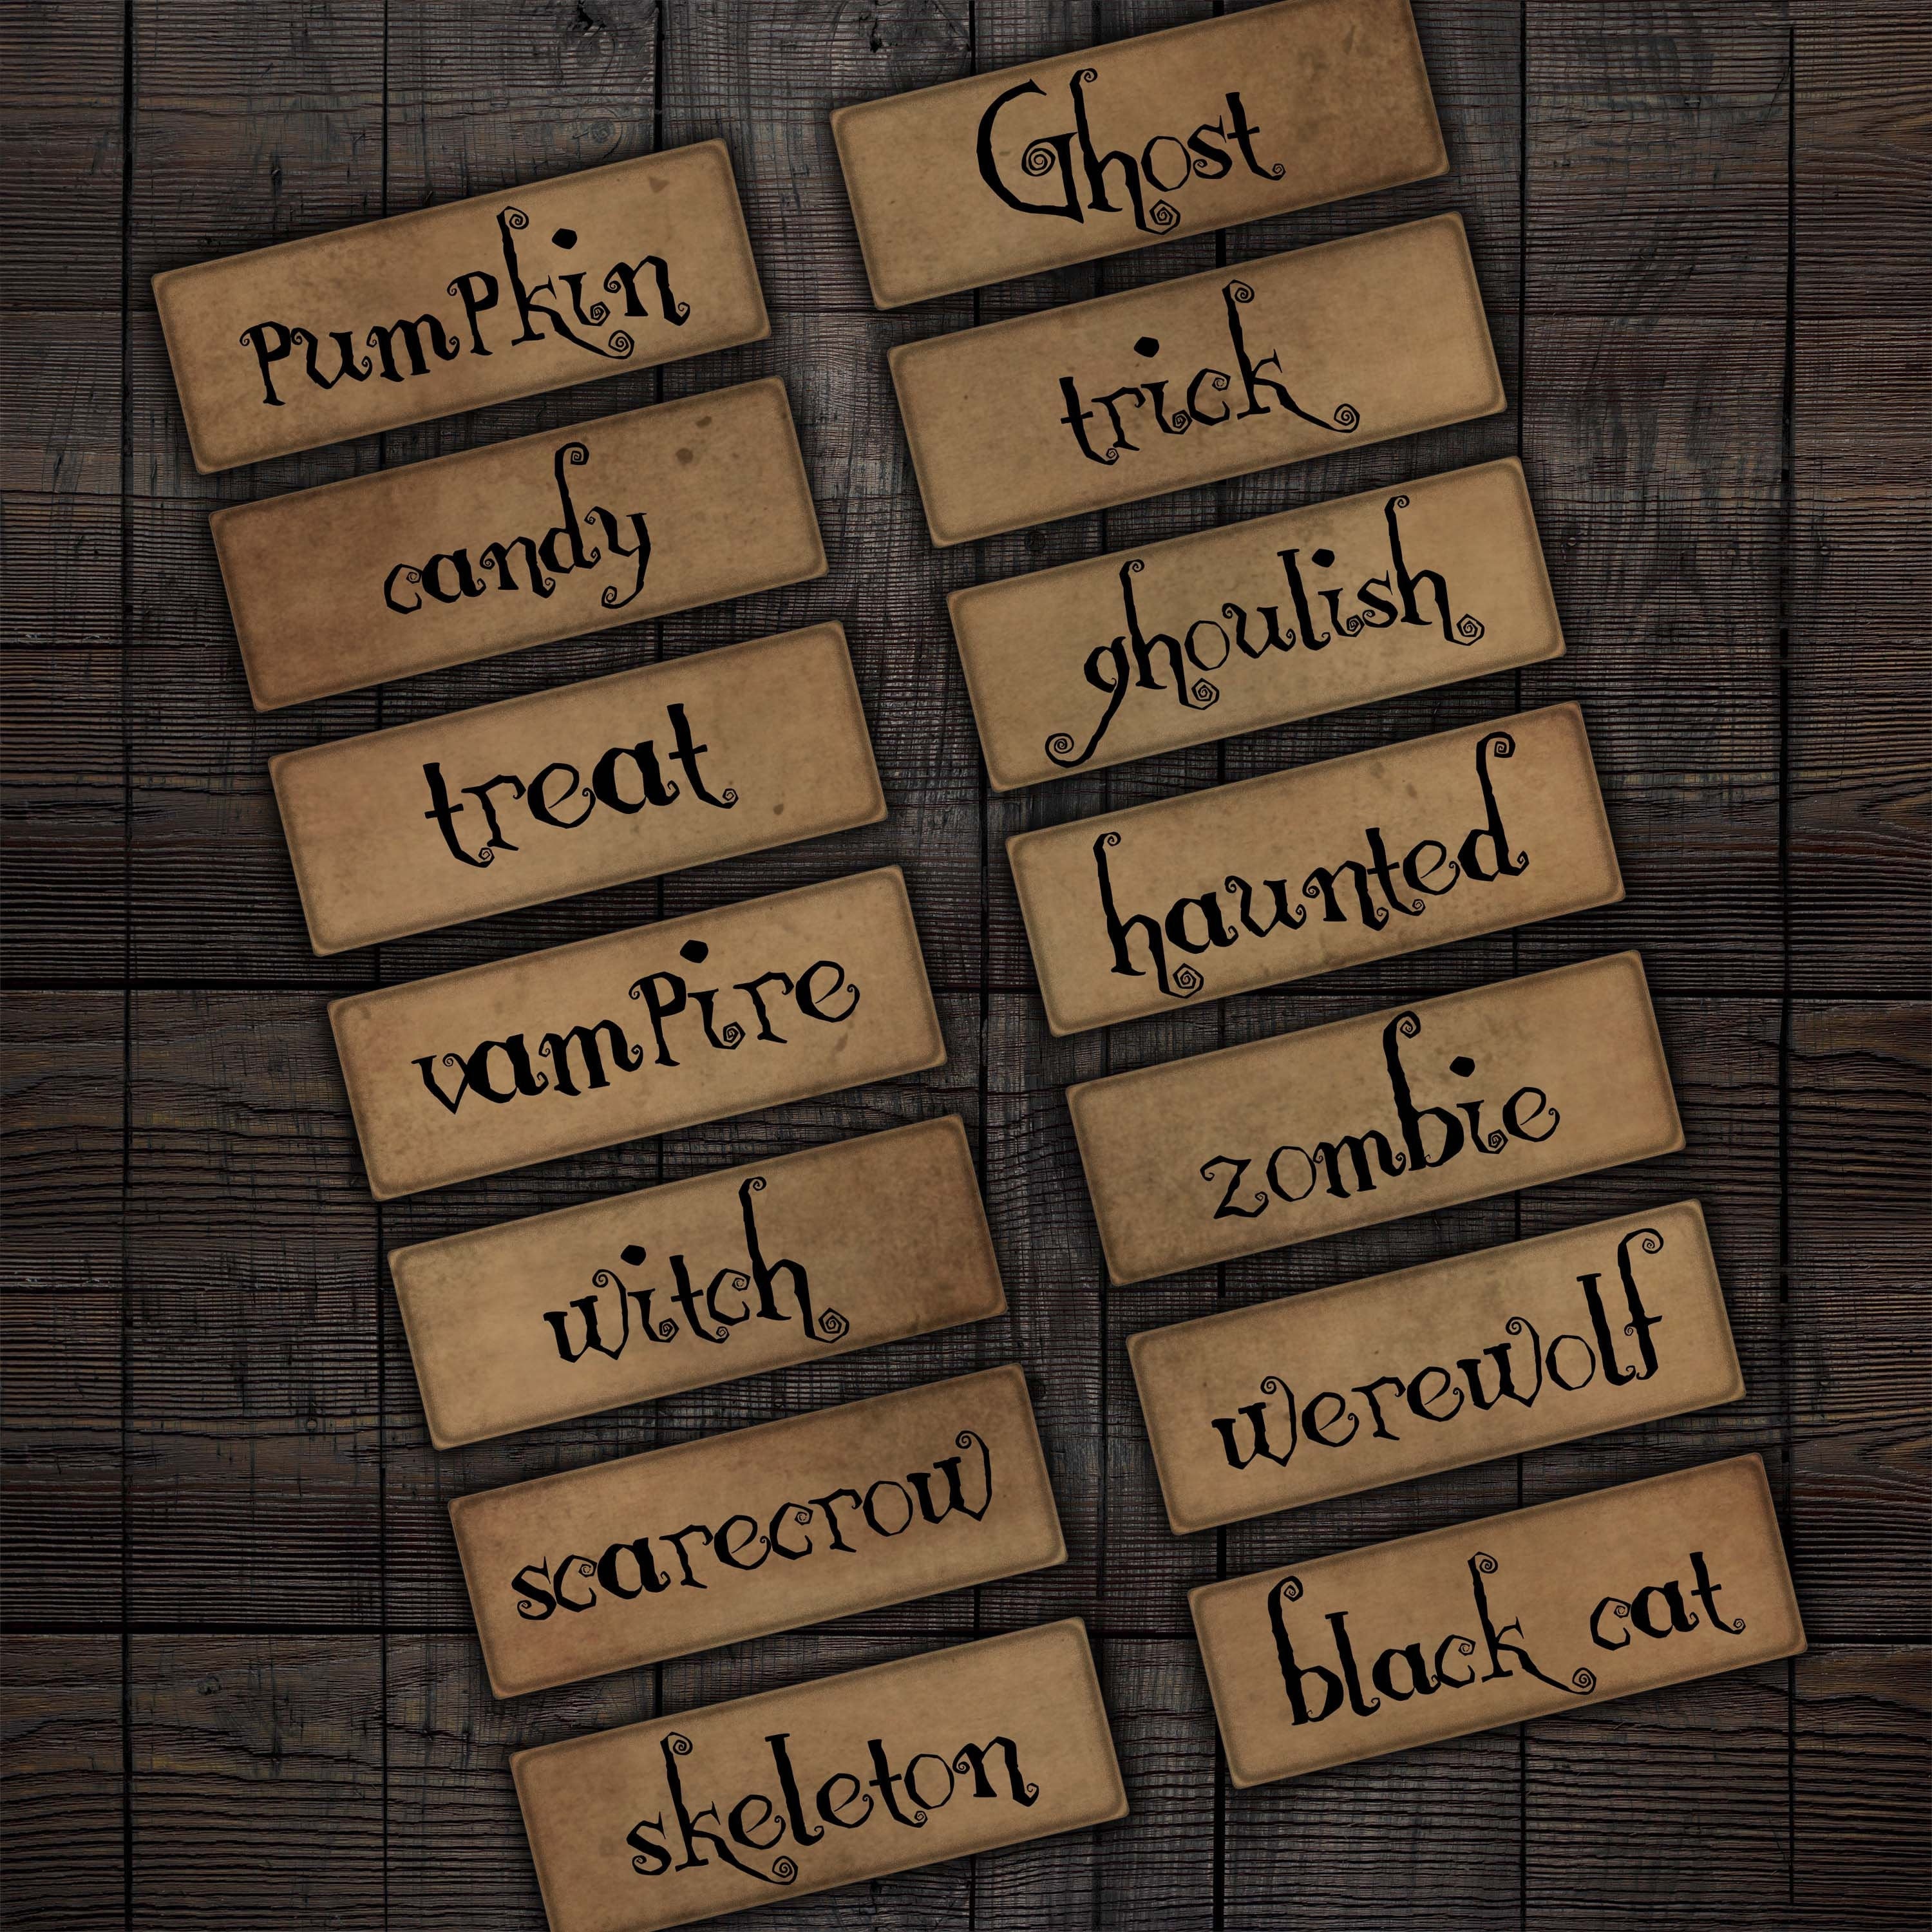 pumpkin
candy
treat
vampire
witch
scarecrow
skeleton
Ghost
trick
ghoulish
haunted
zombie
werewolf
black cat